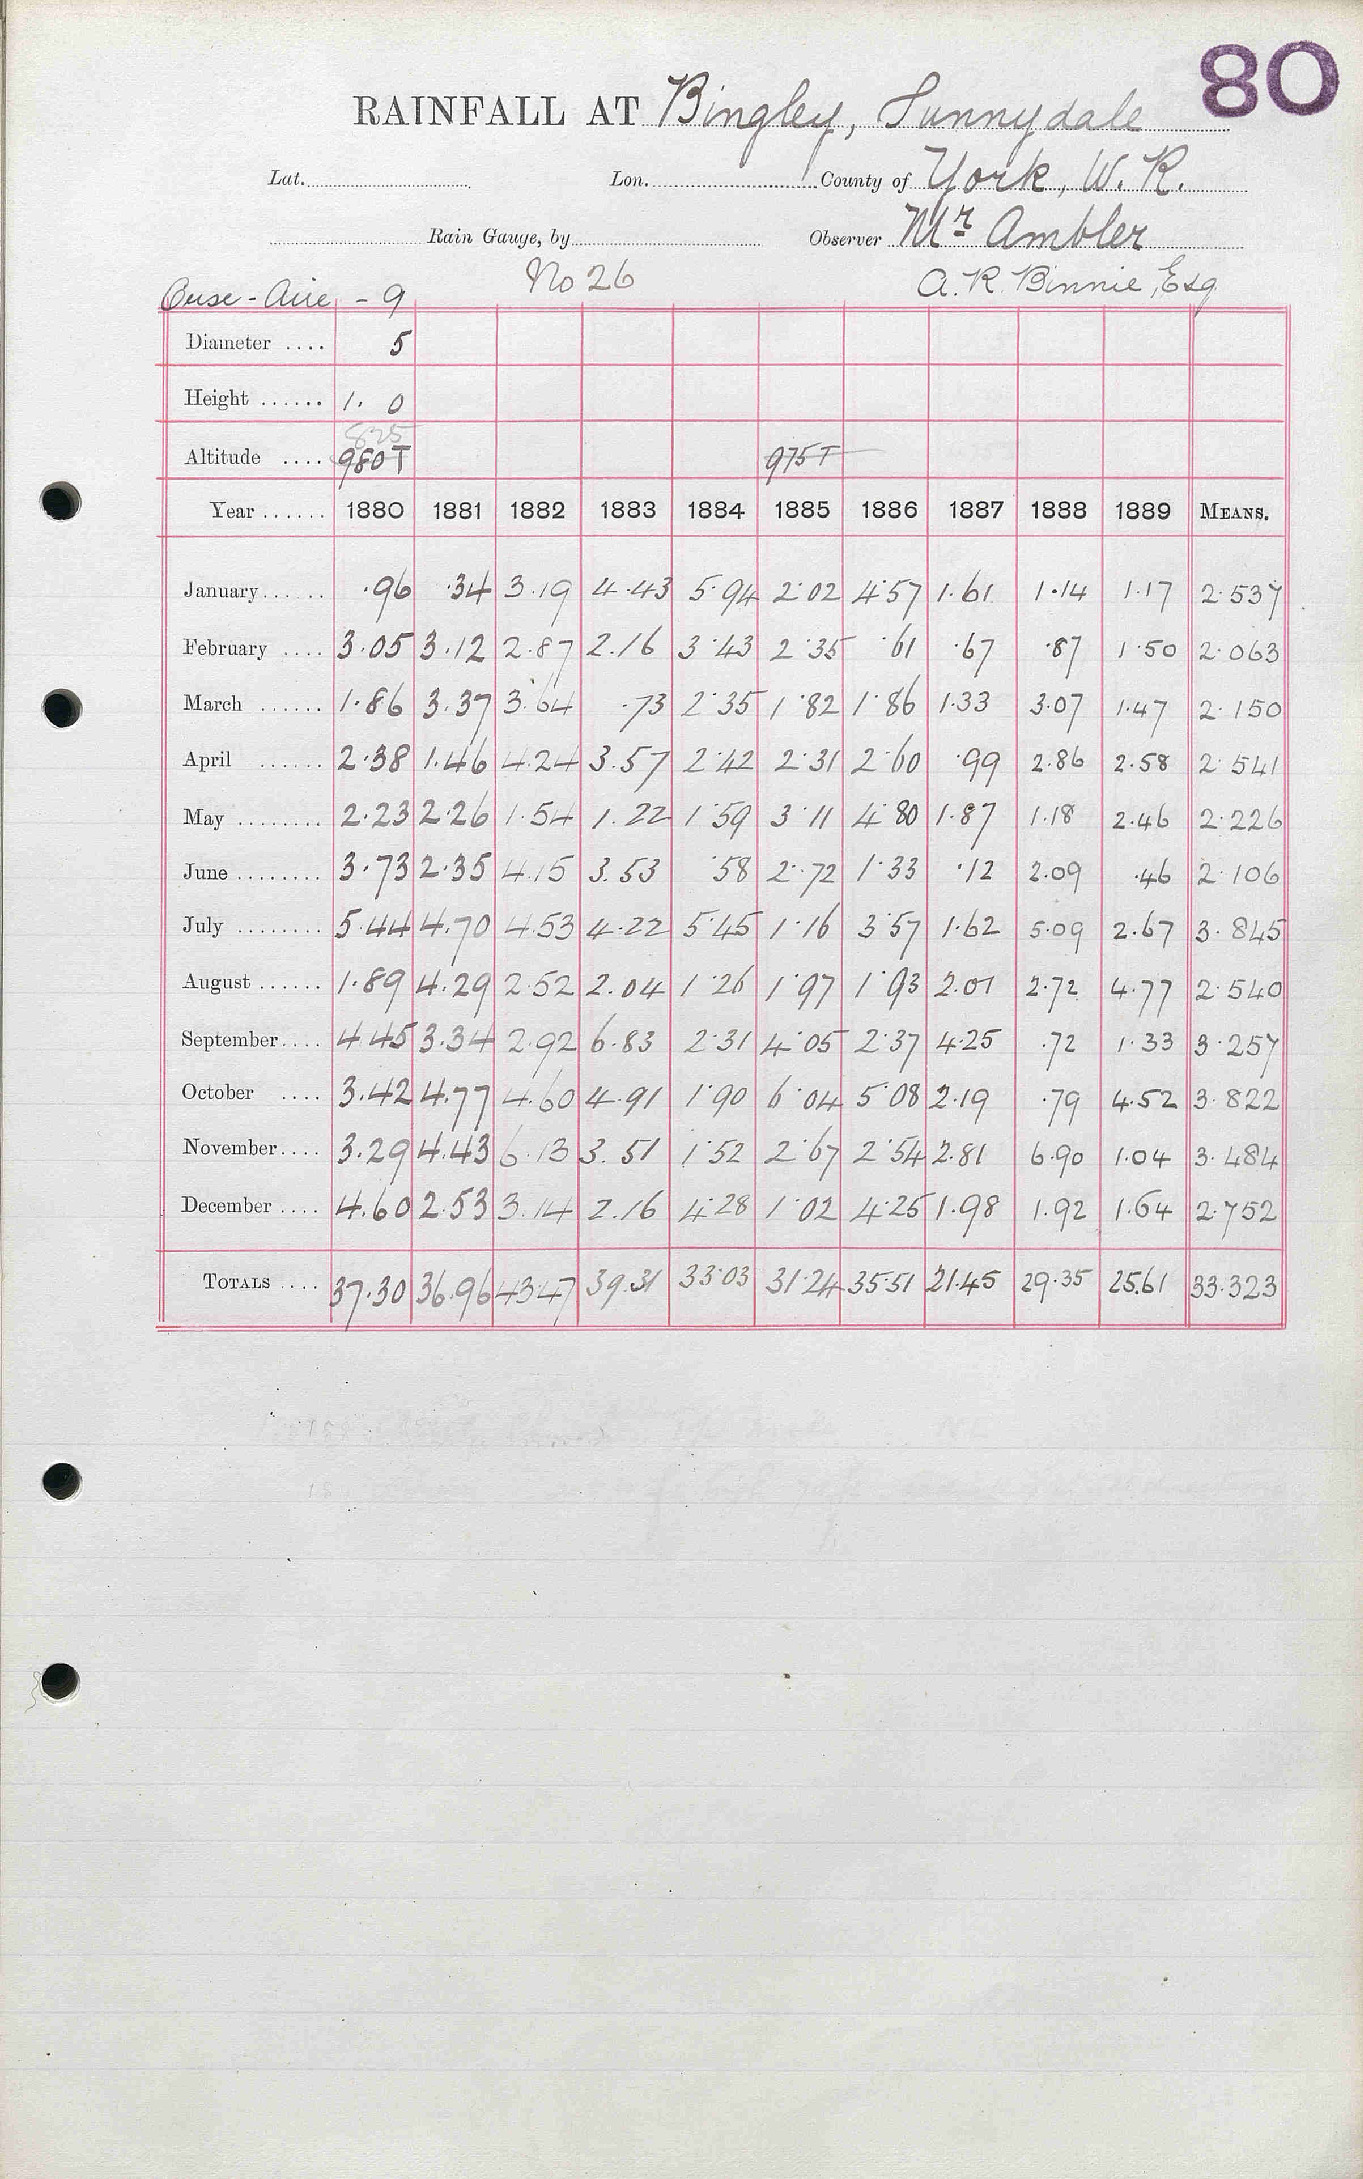 80
RAINFALL AT Bingley, Sunnydale
Lat. Lon. County of York, W. R.
Rain Gauge, by Observer Mr Ambler
Ouse - Aire - 9 No 26 A. R. Binnie, Esq
Diameter .... 5
Height ...... 1. 0
825
Altitude .... 980T 975T
Year ...... 1880 1881 1882 1883 1884 1885 1886 1887 1888 1889 MEANS.
January ...... .96 .34 3.19 4.43 5.94 2.02 4.57 1.61 1.14 1.17 2.537
February .... 3.05 3.12 2.87 2.16 3.43 2.35 .61 .67 .87 1.50 2.063
March ...... 1.86 3.37 3.64 .73 2.35 1.82 1.86 1.33 3.07 1.47 2.150
April ...... 2.38 1.46 4.24 3.57 2.42 2.31 2.60 .99 2.86 2.58 2.541
May ........ 2.23 2.26 1.54 1.22 1.59 3.11 4.80 1.87 1.18 2.46 2.226
June ........ 3.73 2.35 4.15 3.53 .58 2.72 1.33 .12 2.09 .46 2.106
July ........ 5.44 4.70 4.53 4.22 5.45 1.16 3.57 1.62 5.09 2.67 3.845
August ...... 1.89 4.29 2.52 2.04 1.26 1.97 1.93 2.01 2.72 4.77 2.540
September.... 4.45 3.34 2.92 6.83 2.31 4.05 2.37 4.25 .72 1.33 3.257
October .... 3.42 4.77 4.60 4.91 1.90 6.04 5.08 2.19 .79 4.52 3.822
November.... 3.29 4.43 6.13 3.51 1.52 2.67 2.54 2.81 6.90 1.04 3.484
December .... 4.60 2.53 3.14 2.16 4.28 1.02 4.25 1.98 1.92 1.64 2.752
TOTALS .... 37.30 36.96 43.47 39.31 33.03 31.24 35.51 21.45 29.35 25.61 33.323